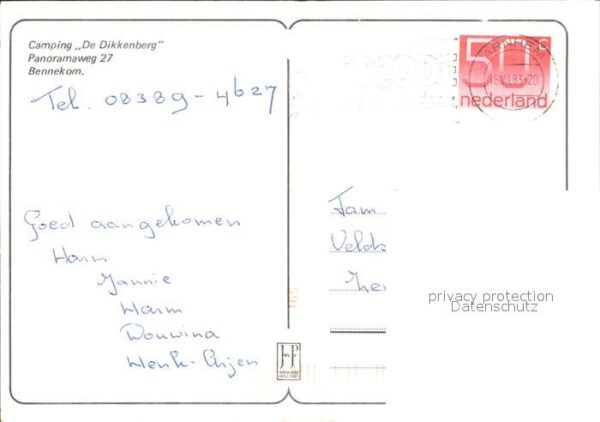 Camping „De Dikkenberg"
Panoramaweg 27
Bennekom.
Tel. 08389-4627
Goed aangekomen
Harm
Jannie
Harm
Wouwina
Henk-Arjen
50 c
nederland
ARNHEM
Fam
privacy protection
Datenschutz